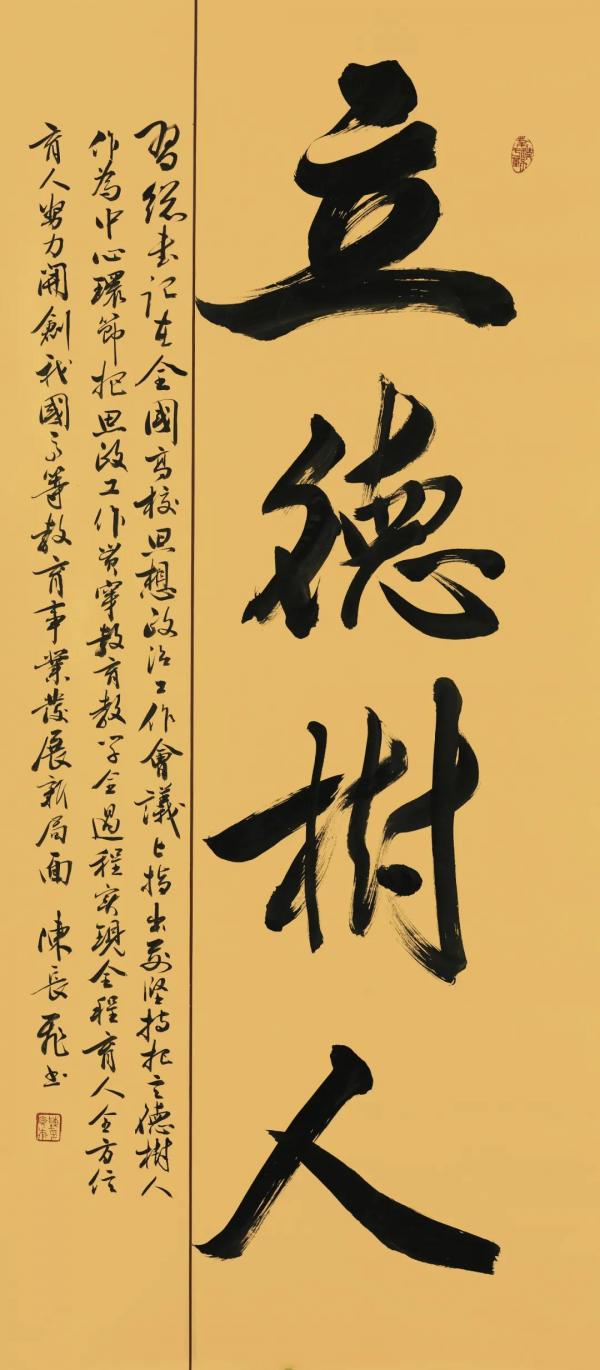 立德樹人
習總書记在全國高校思想政治工作會議上指出要坚持把立德樹人
作為中心環節把思政工作貫穿教育教学全過程実現全程育人全方位
育人努力開創我國高等教育事業發展新局面 陳長飛书